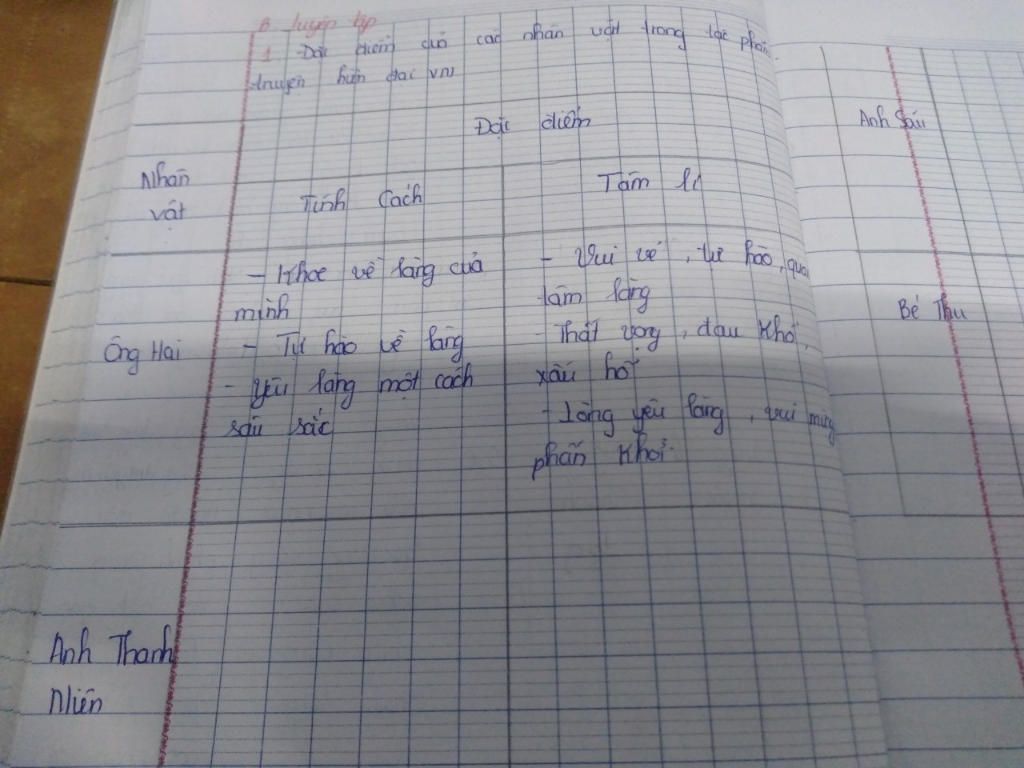 B luyện tập
1 Đặc điểm của các nhân vật trong tác phẩm
truyện hiện đại VN
Đặc điểm
Nhân
vật
Tính Cách
Tâm lí
Ông Hai
- Khoe về làng của
mình
- Tự hào về làng
- yêu làng một cách
sâu sắc
- Vui vẻ, tự hào, quan
tâm làng
- Thất vọng, đau khổ,
xấu hổ
- Lòng yêu làng, vui mừng
phấn khởi.
Anh Thanh
Niên
Anh Sáu
Bé Thu